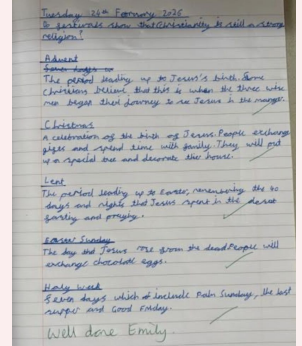 Tuesday 24th February 2025
Do festivals show that Christianity is still a strong
religion?
Advent
The period leading up to Jesus's birth. Some
Christians believe that this is when the three wise
men began their journey to see Jesus in the manger.
Christmas
A celebration of the birth of Jesus. People exchange
gifts and spend time with family. They will put
up a special tree and decorate the house.
Lent
The period leading up to Easter, remembering the 40
days and nights that Jesus spent in the desert
fasting and praying.
Easter Sunday
The day that Jesus rose from the dead. People will
exchange chocolate eggs.
Holy Week
Seven days which include Palm Sunday, the last
supper and Good Friday.
Well done Emily.